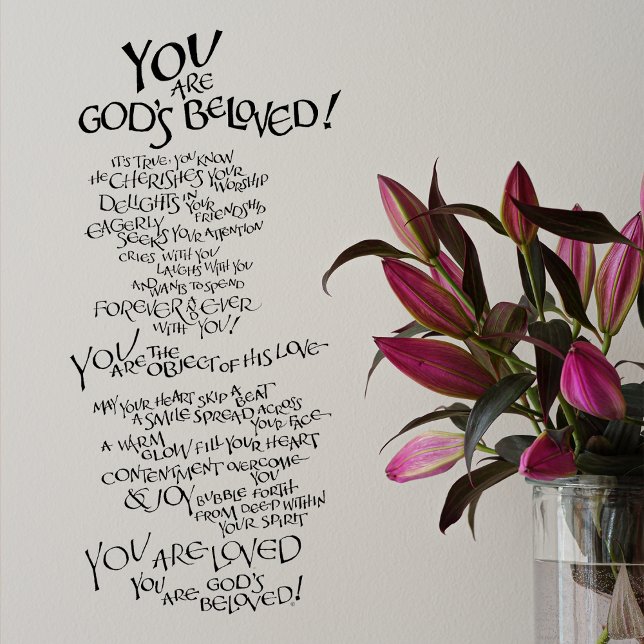 YOU
ARE
GOD'S BELOVED!
IT'S TRUE, YOU KNOW
HE CHERISHES YOUR
WORSHIP
DELIGHTS IN YOUR
FRIENDSHIP
EAGERLY
SEEKS YOUR ATTENTION
CRIES WITH YOU
LAUGHS WITH YOU
AND WANTS TO SPEND
FOREVER AND EVER
WITH YOU!
YOU ARE THE
OBJECT OF HIS LOVE
MAY YOUR HEART SKIP A
BEAT
A SMILE SPREAD ACROSS
YOUR FACE
A WARM
GLOW FILL YOUR HEART
CONTENTMENT OVERCOME
YOU
& JOY BUBBLE FORTH
FROM DEEP WITHIN
YOUR SPIRIT
YOU ARE LOVED
YOU
ARE GOD'S
BELOVED!